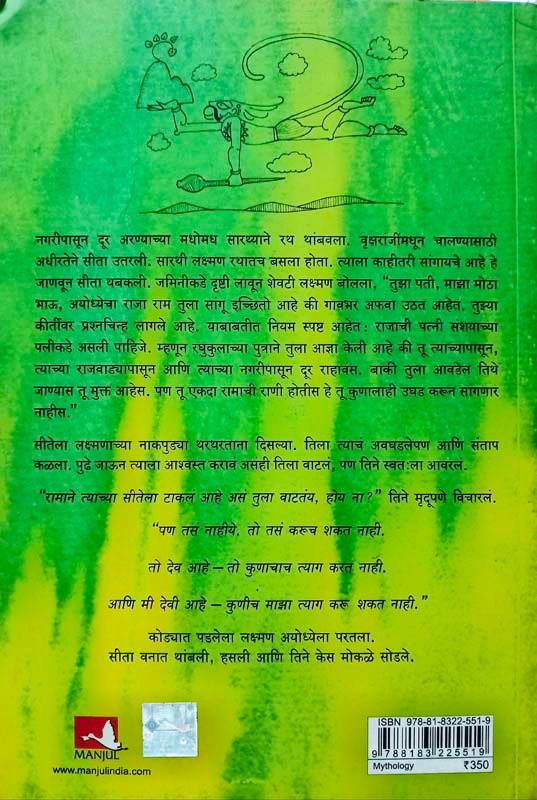 नगरीपासून दूर अरण्याच्या मधोमध सारथ्याने रथ थांबवला. वृक्षराजींमधून चालण्यासाठी
अधीरतेने सीता उतरली. सारथी लक्ष्मण रथातच बसला होता. त्याला काहीतरी सांगायचे आहे हे
जाणवून सीता थबकली. जमिनीकडे दृष्टी लावून शेवटी लक्ष्मण बोलला, “तुझा पती, माझा मोठा
भाऊ, अयोध्येचा राजा राम तुला सांगू इच्छितो आहे की गावभर अफवा उठत आहेत. तुझ्या
कीर्तीवर प्रश्नचिन्ह लागले आहे. याबाबतीत नियम स्पष्ट आहेत : राजाची पत्नी संशयाच्या
पलीकडे असली पाहिजे. म्हणून रघुकुलाच्या पुत्राने तुला आज्ञा केली आहे की तू त्याच्यापासून,
त्याच्या राजवाड्यापासून आणि त्याच्या नगरीपासून दूर राहावंस. बाकी तुला आवडेल तिथे
जाण्यास तू मुक्त आहेस. पण तू एकदा रामाची राणी होतीस हे तू कुणालाही उघड करून सांगणार
नाहीस.”
सीतेला लक्ष्मणाच्या नाकपुड्या थरथरताना दिसल्या. तिला त्याचं अवघडलेपण आणि संताप
कळला. पुढे जाऊन त्याला आश्वस्त करावं असंही तिला वाटलं, पण तिने स्वतःला आवरलं.
“रामाने त्याच्या सीतेला टाकलं आहे असं तुला वाटतंय, होय ना?” तिने मृदूपणे विचारलं.
“पण तसं नाहीये. तो तसं करूच शकत नाही.
तो देव आहे – तो कुणाचाच त्याग करत नाही.
आणि मी देवी आहे – कुणीच माझा त्याग करू शकत नाही.”
कोड्यात पडलेला लक्ष्मण अयोध्येला परतला.
सीता वनात थांबली, हसली आणि तिने केस मोकळे सोडले.
MANJUL
www.manjulindia.com
ISBN 978-81-8322-551-9
9 788183 225519
Mythology ₹350